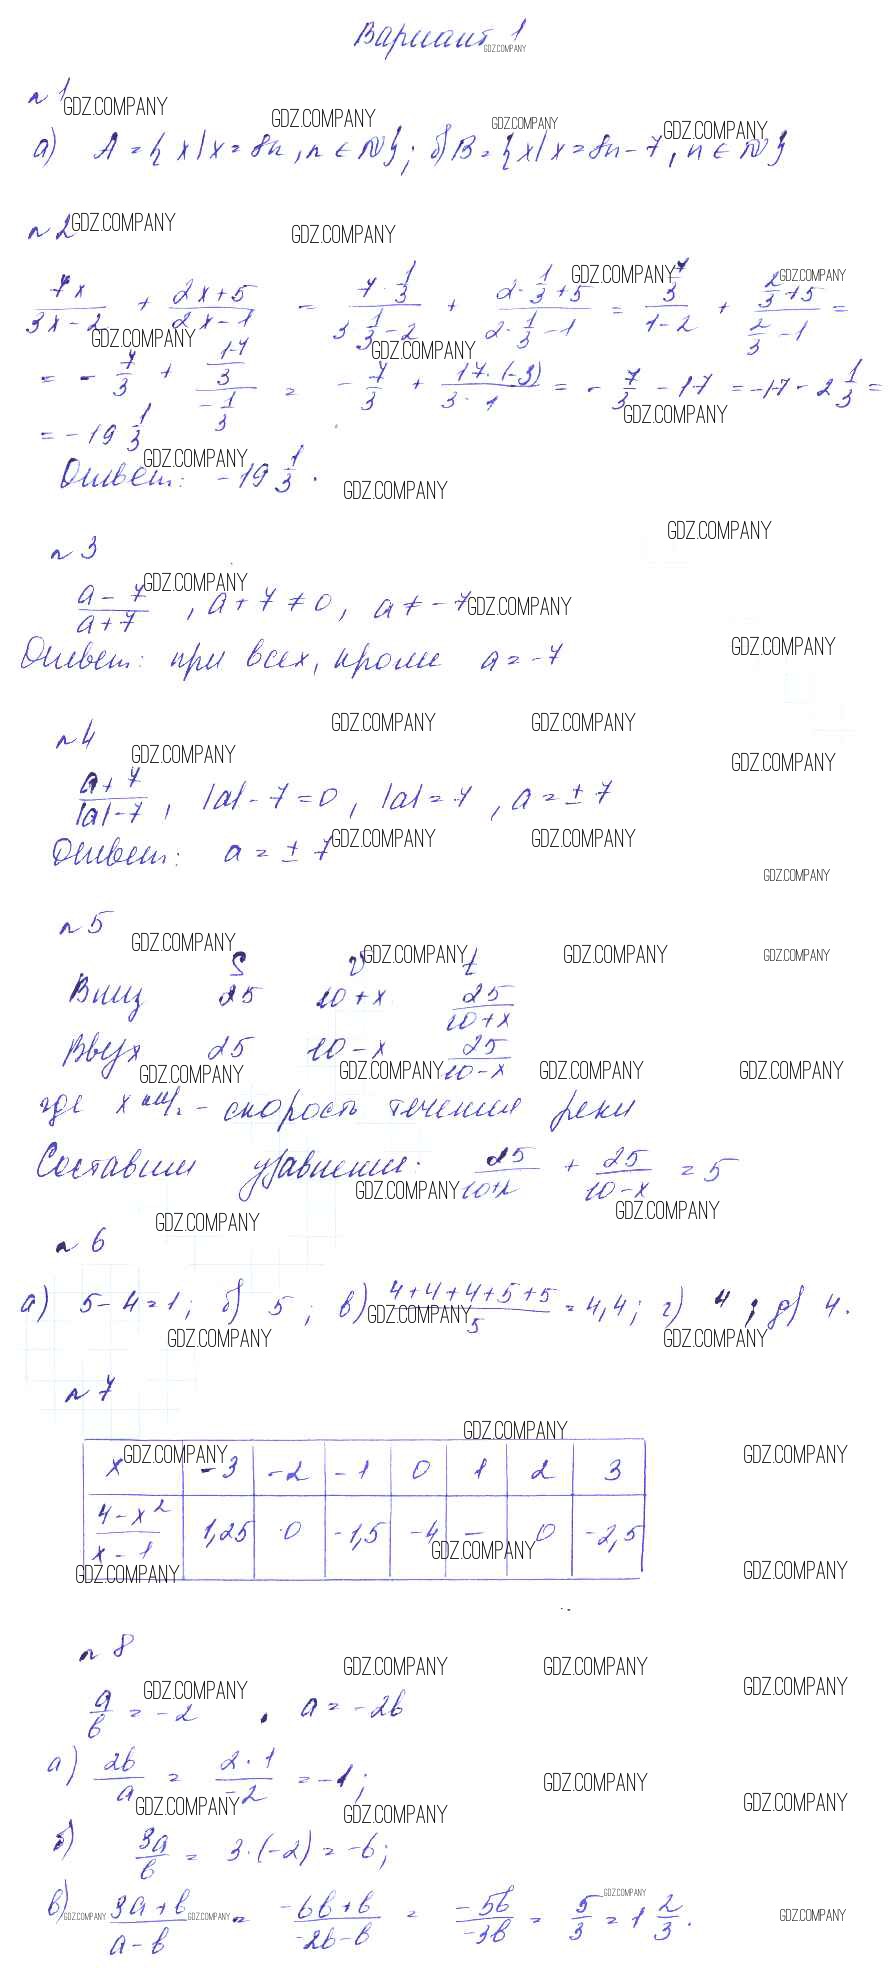 Вариант 1
GDZ.COMPANY
n 1
а) A = { x | x = 8n, n ∈ N }; б) B = { x | x = 8n - 7, n ∈ N }
n 2
7x/(3x - 2) + (2x + 5)/(2x - 1) = (7 · 1/3)/(3 · 1/3 - 2) + (2 · 1/3 + 5)/(2 · 1/3 - 1) = (7/3)/(1 - 2) + (2/3 + 5)/(2/3 - 1) =
= - 7/3 + (17/3)/(- 1/3) = - 7/3 + (17 · (-3))/(3 · 1) = - 7/3 - 17 = -17 - 2 1/3 =
= -19 1/3
Ответ: -19 1/3.
n 3
(a - 7)/(a + 7), a + 7 ≠ 0, a ≠ -7
Ответ: при всех, кроме a = -7
n 4
(a + 7)/(|a| - 7), |a| - 7 = 0, |a| = 7, a = ± 7
Ответ: a = ± 7
n 5
S v t
Вниз 25 10 + x 25/(10 + x)
Вверх 25 10 - x 25/(10 - x)
где x км/ч - скорость течения реки
Составим уравнение: 25/(10 + x) + 25/(10 - x) = 5
n 6
а) 5 - 4 = 1; б) 5; в) (4 + 4 + 4 + 5 + 5)/5 = 4,4; г) 4; д) 4.
n 7
x -3 -2 -1 0 1 2 3
(4 - x²)/(x - 1) 1,25 0 -1,5 -4 - 0 -2,5
n 8
a/b = -2 . a = -2b
а) 2b/a = (2 · 1)/(-2) = -1;
б) 3a/b = 3 · (-2) = -6;
в) (3a + b)/(a - b) = (-6b + b)/(-2b - b) = (-5b)/(-3b) = 5/3 = 1 2/3.